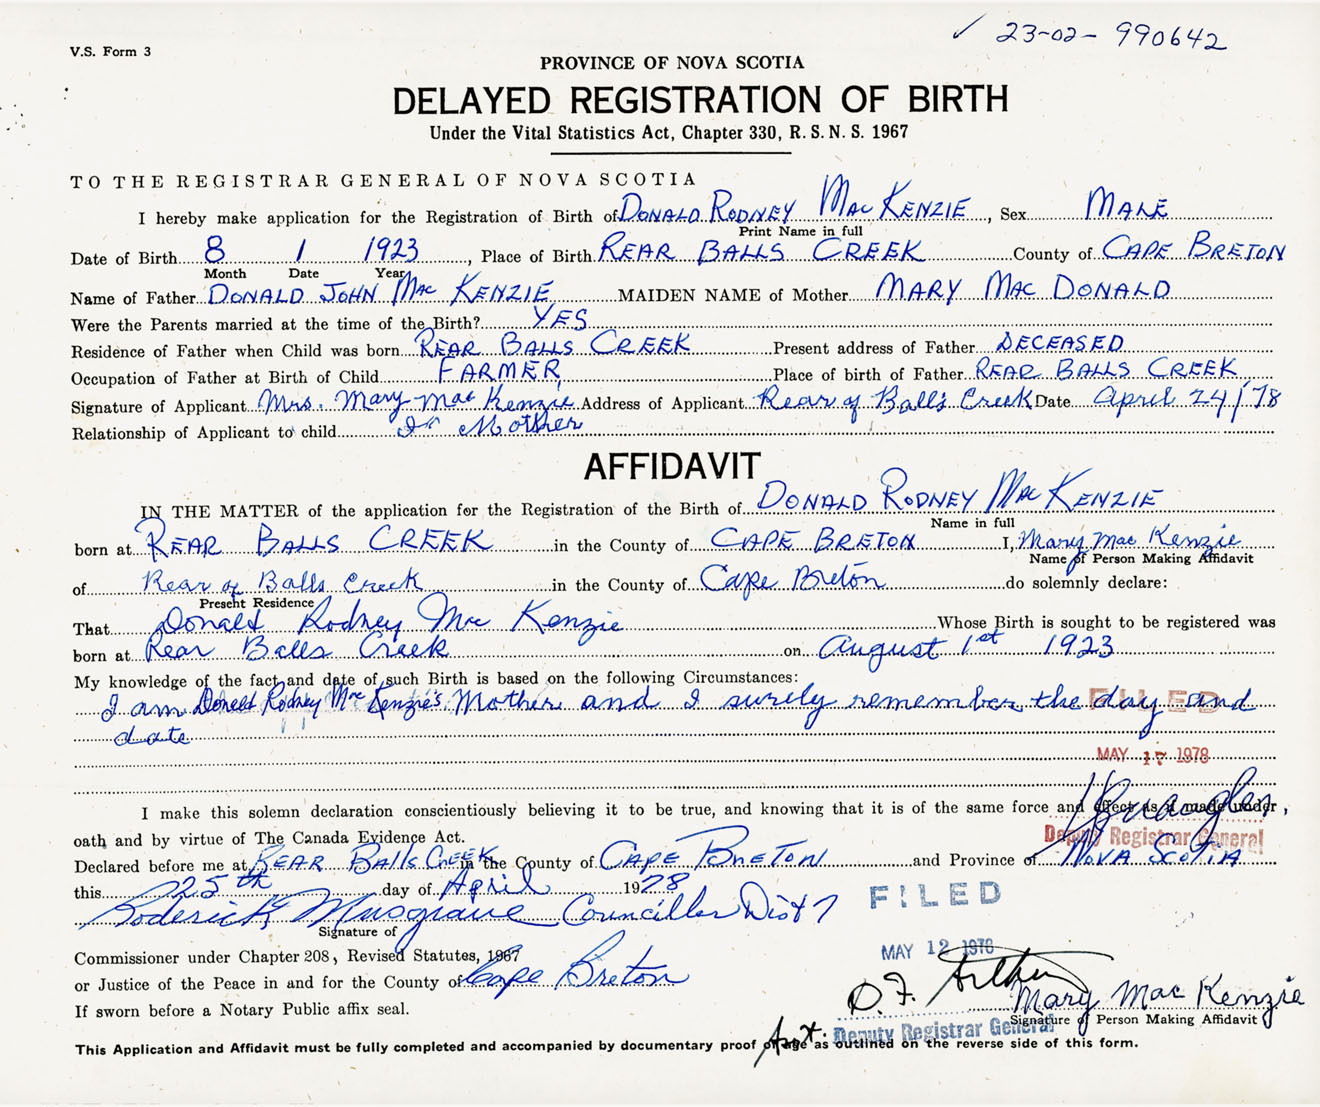 ✓ 23-02-990642
V.S. Form 3
PROVINCE OF NOVA SCOTIA
DELAYED REGISTRATION OF BIRTH
Under the Vital Statistics Act, Chapter 330, R.S.N.S. 1967
TO THE REGISTRAR GENERAL OF NOVA SCOTIA
I hereby make application for the Registration of Birth of DONALD RODNEY MacKENZIE, Sex MALE
Print Name in full
Date of Birth 8 1 1923, Place of Birth REAR BALLS CREEK County of CAPE BRETON
Month Date Year
Name of Father DONALD JOHN MacKENZIE MAIDEN NAME of Mother MARY MacDONALD
Were the Parents married at the time of the Birth? YES
Residence of Father when Child was born REAR BALLS CREEK Present address of Father DECEASED
Occupation of Father at Birth of Child FARMER Place of birth of Father REAR BALLS CREEK
Signature of Applicant Mrs. Mary MacKenzie Address of Applicant Rear of Ball's Creek Date April 24/78
Relationship of Applicant to child Mother
AFFIDAVIT
IN THE MATTER of the application for the Registration of the Birth of DONALD RODNEY MacKENZIE
Name in full
born at REAR BALLS CREEK in the County of CAPE BRETON I, Mary MacKenzie
Name of Person Making Affidavit
of Rear of Balls Creek in the County of Cape Breton do solemnly declare:
Present Residence
That Donald Rodney MacKenzie Whose Birth is sought to be registered was
born at Rear Balls Creek on August 1st 1923
My knowledge of the fact and date of such Birth is based on the following Circumstances:
I am Donald Rodney MacKenzie's Mother and I surely remember the day and
FILED
date
MAY 17 1978
I make this solemn declaration conscientiously believing it to be true, and knowing that it is of the same force and effect as if made under
oath and by virtue of The Canada Evidence Act.
Deputy Registrar General
Declared before me at REAR BALLS CREEK in the County of CAPE BRETON and Province of NOVA SCOTIA
this 25th day of April 1978
FILED
Roderick Musgrave Councillor Dist 7
Signature of
MAY 12 1978
Commissioner under Chapter 208, Revised Statutes, 1967
or Justice of the Peace in and for the County of Cape Breton
D.F.
Mary MacKenzie
If sworn before a Notary Public affix seal.
Signature of Person Making Affidavit
Deputy Registrar General
This Application and Affidavit must be fully completed and accompanied by documentary proof of age as outlined on the reverse side of this form.